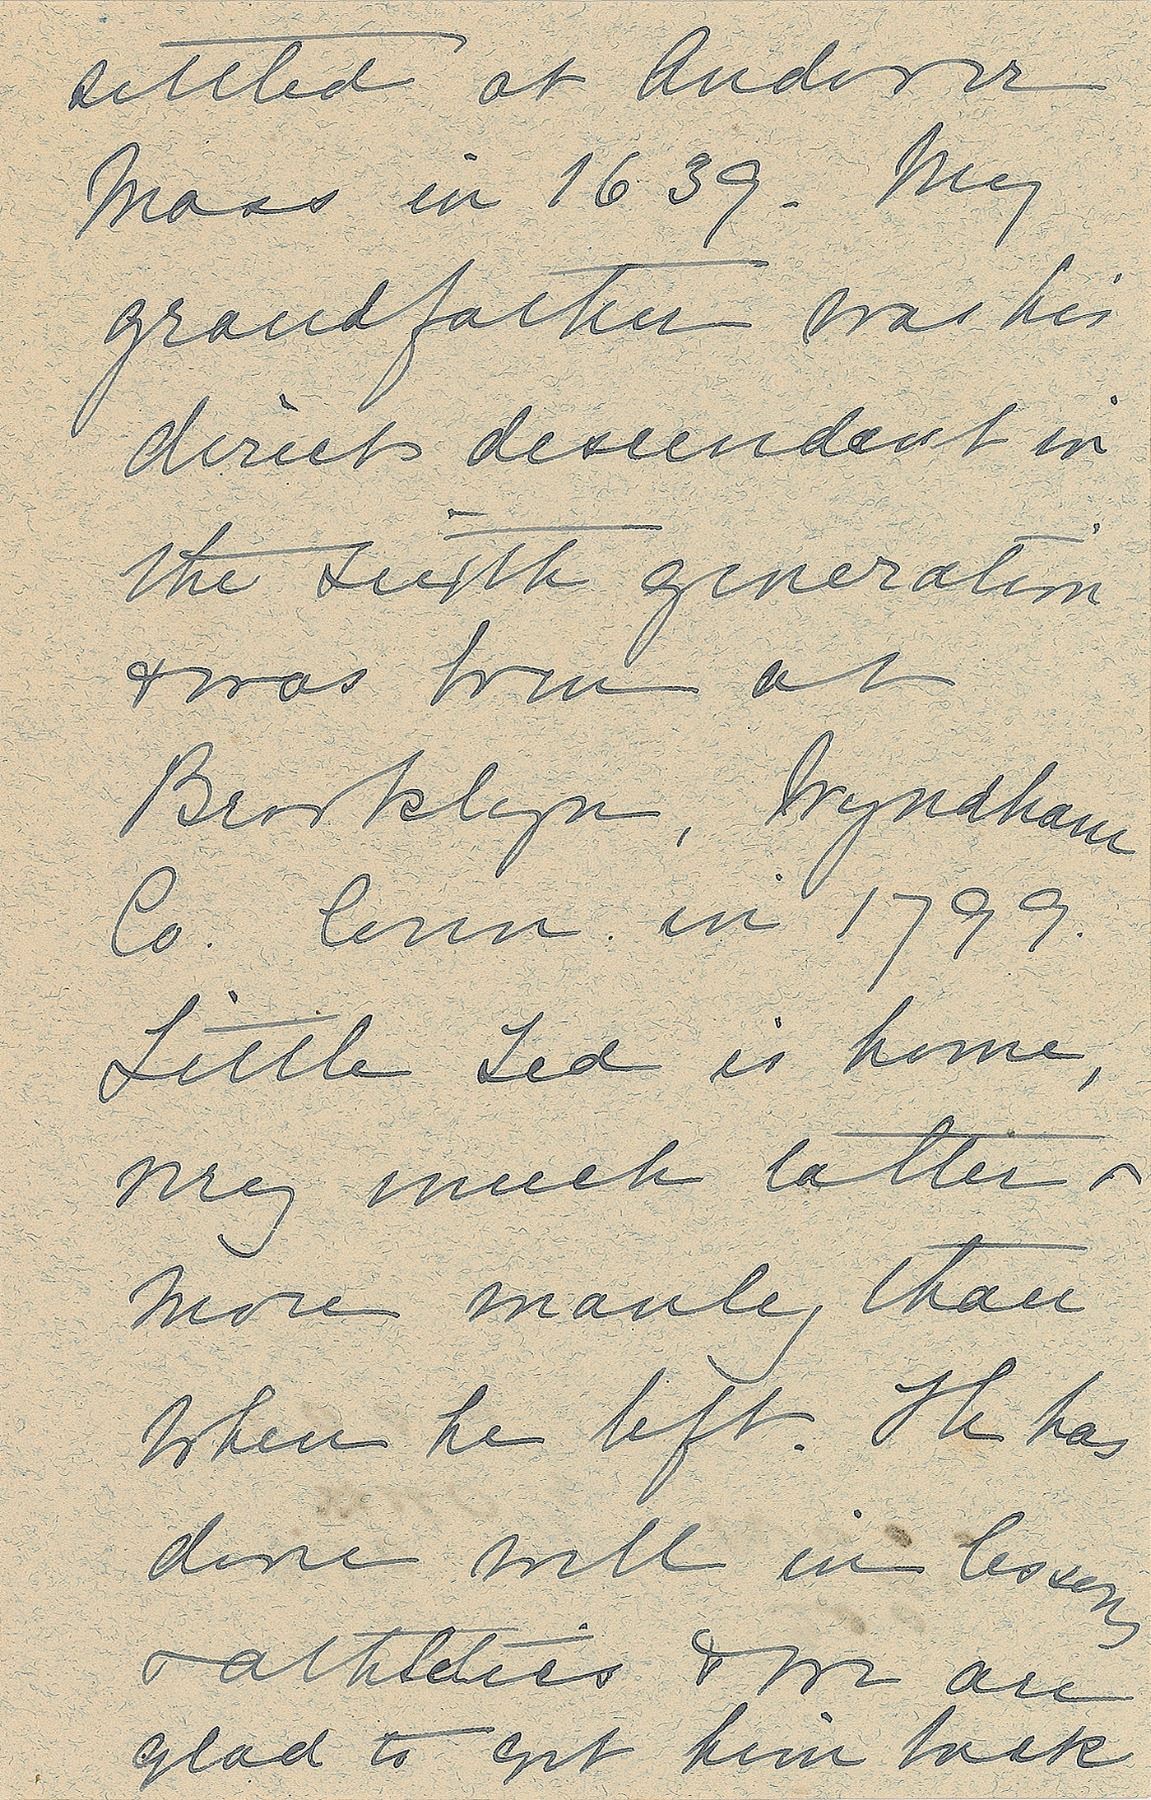 settled at Andover
Mass in 1639. My
grandfather was his
direct descendent in
the sixth generation
& was born at
Brooklyn, Wyndham
Co. Conn. in 1799.
Little Ted is home,
very much fatter &
more manly than
when he left. He has
done well in lessons
& athletics & we are
glad to get him back